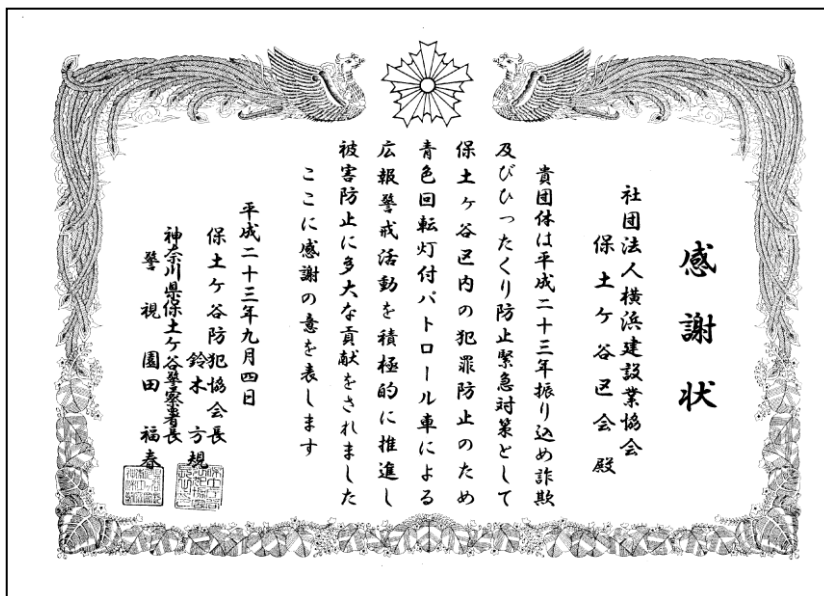 感謝状
社団法人横浜建設業協会
保土ケ谷区会殿
貴団体は平成二十三年振り込め詐欺
及びひったくり防止緊急対策として
保土ケ谷区内の犯罪防止のため
青色回転灯付パトロール車による
広報警戒活動を積極的に推進し
被害防止に多大な貢献をされました
ここに感謝の意を表します
平成二十三年九月四日
保土ケ谷防犯協会長
鈴木方規
神奈川県保土ケ谷警察署長
警視園田福春